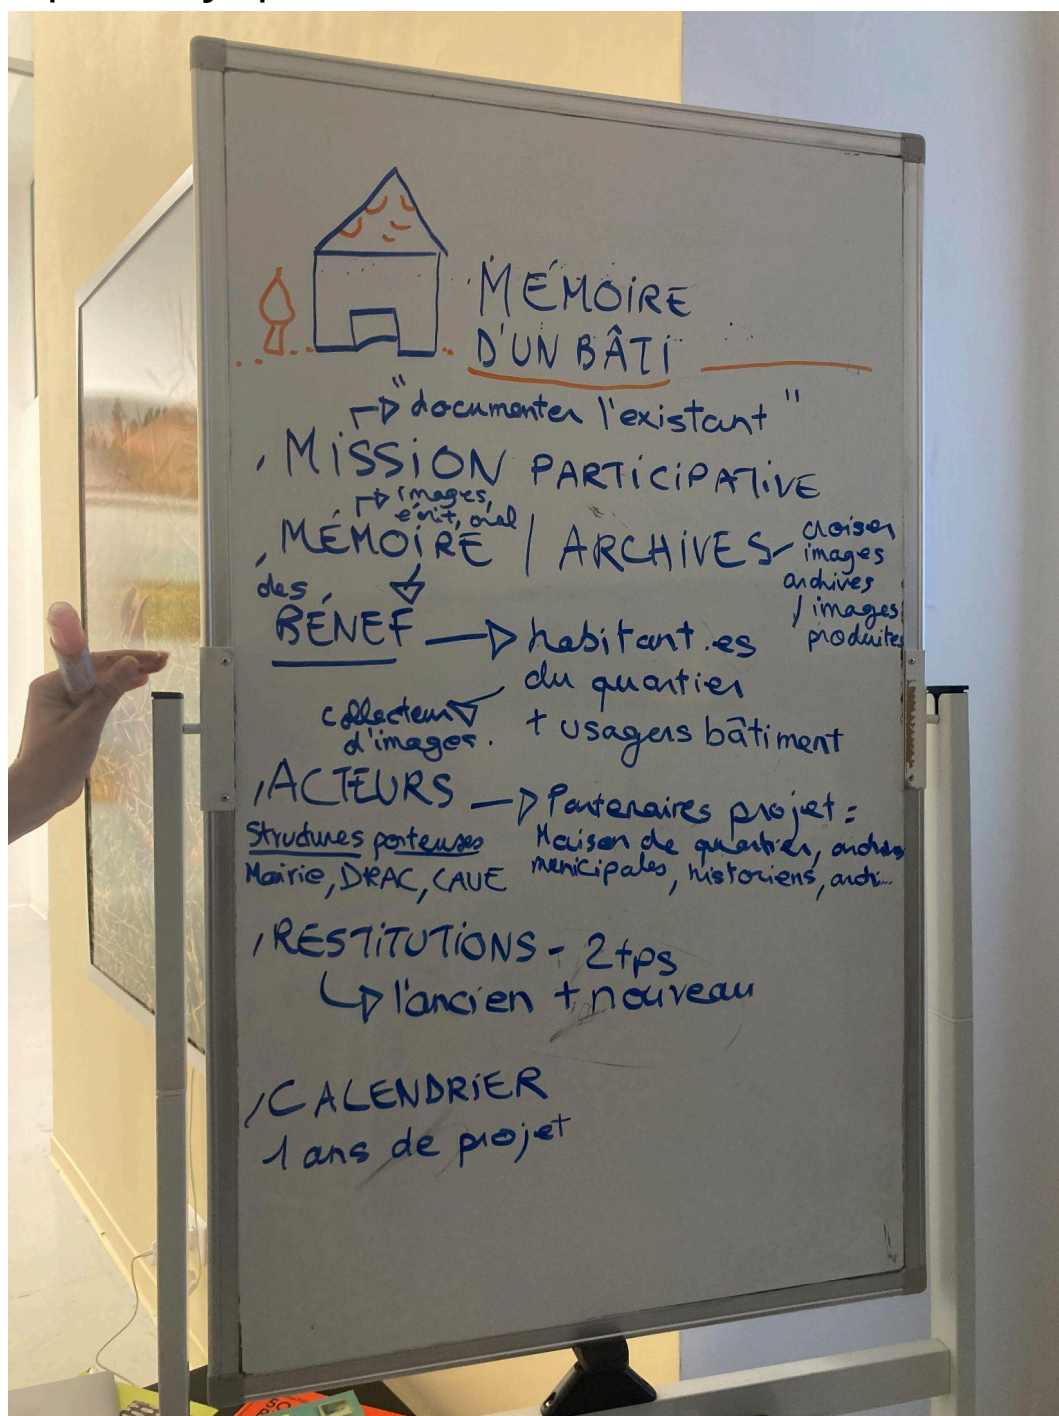 MÉMOIRE
D'UN BÂTI
"documenter l'existant"
, MISSION PARTICIPATIVE
images,
écrit, oral
, MÉMOIRE / ARCHIVES
croiser
images
archives
/ images
produites
des
BÉNEF → habitant.es
du quartier
+ usagers bâtiment
collecteurs
d'images.
, ACTEURS → Partenaires projet :
Structures porteuses
Mairie, DRAC, CAUE
Maison de quartier, archives
municipales, historiens, archi...
, RESTITUTIONS - 2 tps
l'ancien + nouveau
, CALENDRIER
1 ans de projet